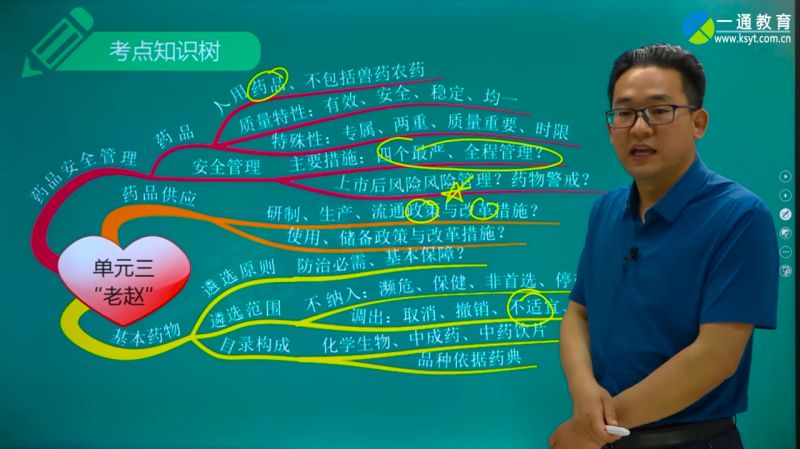 考点知识树
一通教育
www.ksyt.com.cn
人用药品、不包括兽药农药
质量特性：有效、安全、稳定、均一
药品
特殊性：专属、两重、质量重要、时限
药品安全管理
安全管理
主要措施：四个最严、全程管理？
上市后风险风险管理？药物警戒？
药品供应
研制、生产、流通政策与改革措施？
使用、储备政策与改革措施？
单元三
“老赵”
遴选原则
防治必需、基本保障？
遴选范围
不纳入：濒危、保健、非首选、停
调出：取消、撤销、不适宜
基本药物
目录构成
化学生物、中成药、中药饮片
品种依据药典